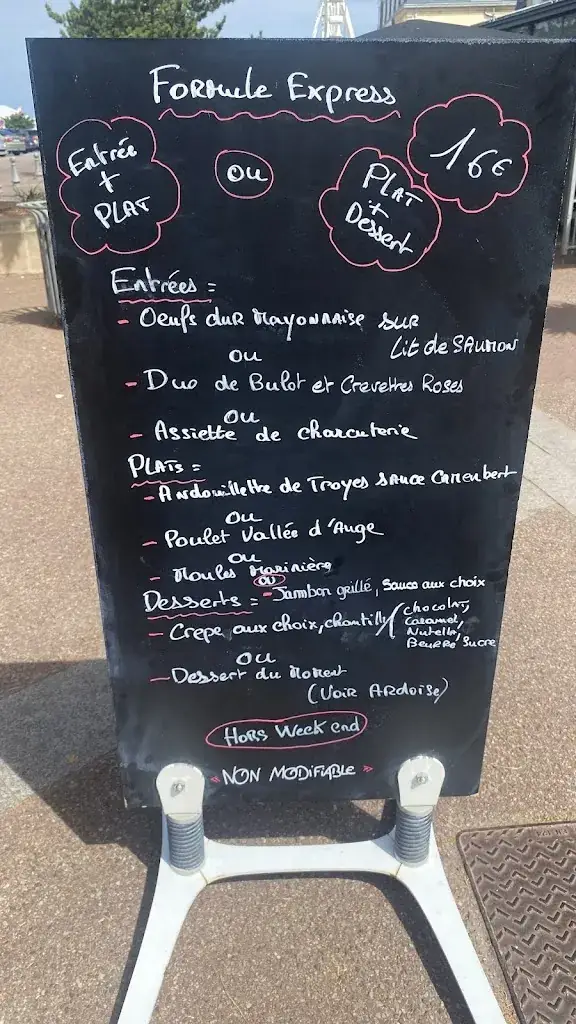 Formule Express
Entrée + PLAT
OU
PLAT + Dessert
16€
Entrées =
- Oeufs dur Mayonnaise sur
Lit de SAUMON
OU
- Duo de Bulot et Crevettes Roses
OU
- Assiette de charcuterie
PLATS =
- Andouillette de Troyes sauce Camenbert
OU
- Poulet Vallée d'Auge
OU
- Moules Marinière
OU
- Jambon grillé, Sauce aux choix
Desserts =
- Crepe aux choix, chantilly / chocolat,
caramel,
Nutella,
Beurre Sucre
OU
- Dessert du Moment
(Voir Ardoise)
Hors Week end
"NON MODIFIABLE"